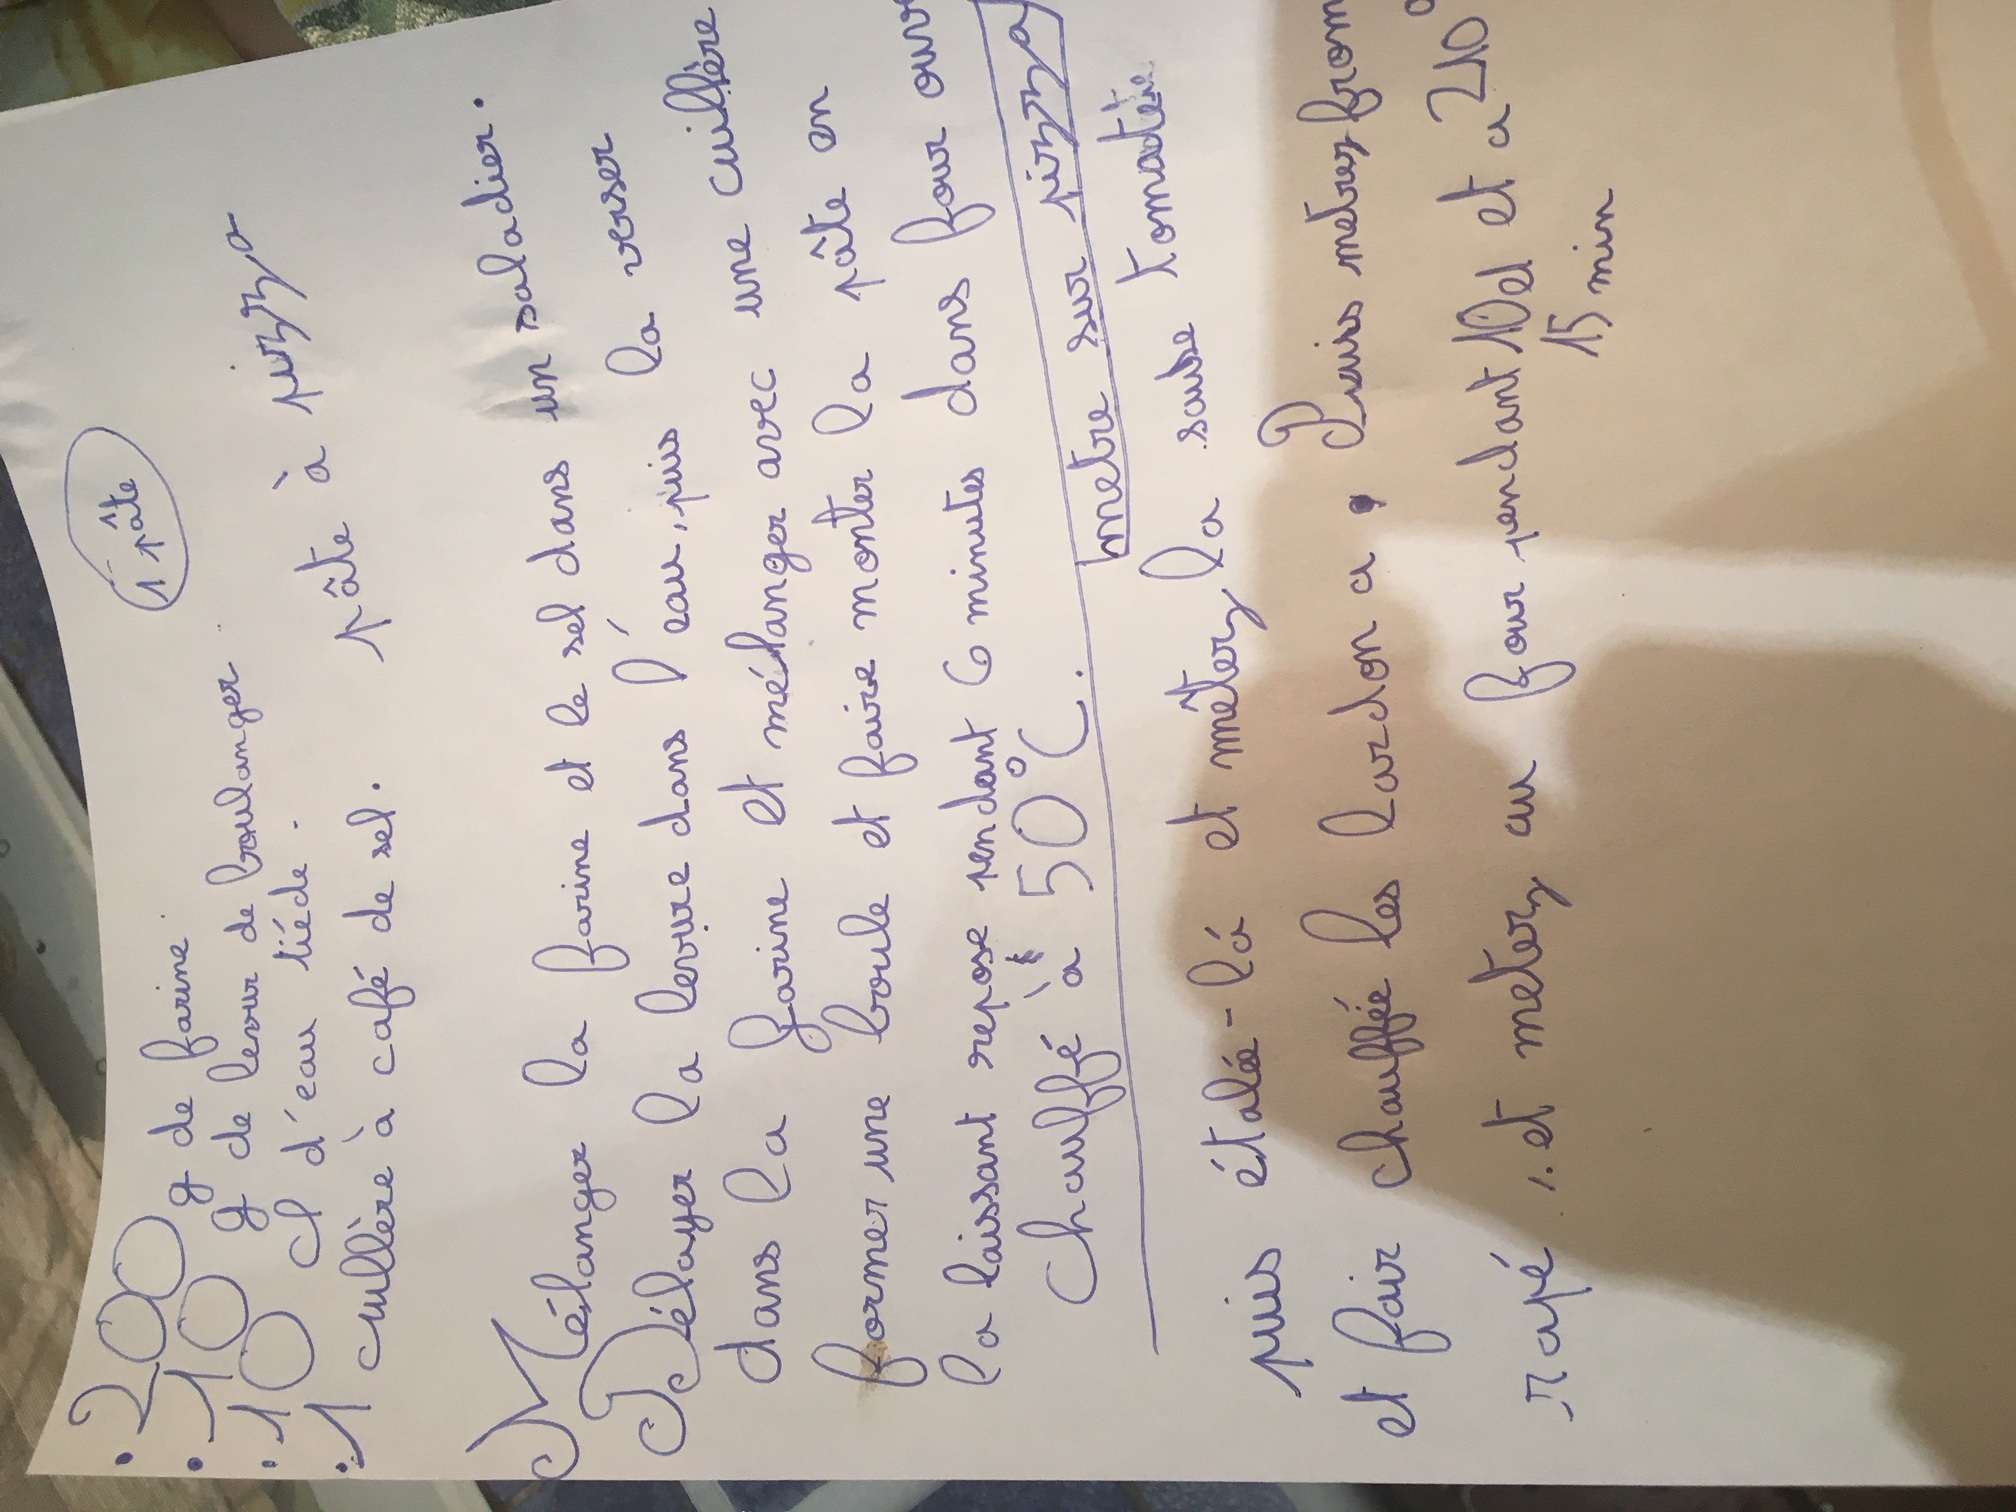 1 pâte
• 200 g de farine
• 10 g de levur de boulanger
• 10 cl d'eau tiéde.
• 1 cullère à café de sel.
pâte à pizza
Mélanger la farine et le sel dans un saladier.
Délayer la levure dans l'eau, puis la verser
dans la farine et mélanger avec une cuillère
former une boule et faire monter la pâte en
la laissant repose pendant 6 minutes dans four ouve
chauffé à 50°C.
metre sur pizza
puis étalé-lá et mêtez la sause tomate
et fair chauffée les lardon a. Puis metrez from
rapé ... et metez au four pendant 10 et a 210°
15 min